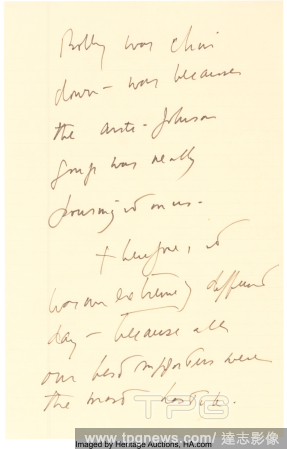 Bobby was
down - was because
the anti-Johnson
group was really
pouring it on us -
therefore, it
was an extremely difficult
day - because all
our best supporters were
the most hostile.
TPG
www.tpgnews.com / 達志影像
Imaged by Heritage Auctions, HA.com